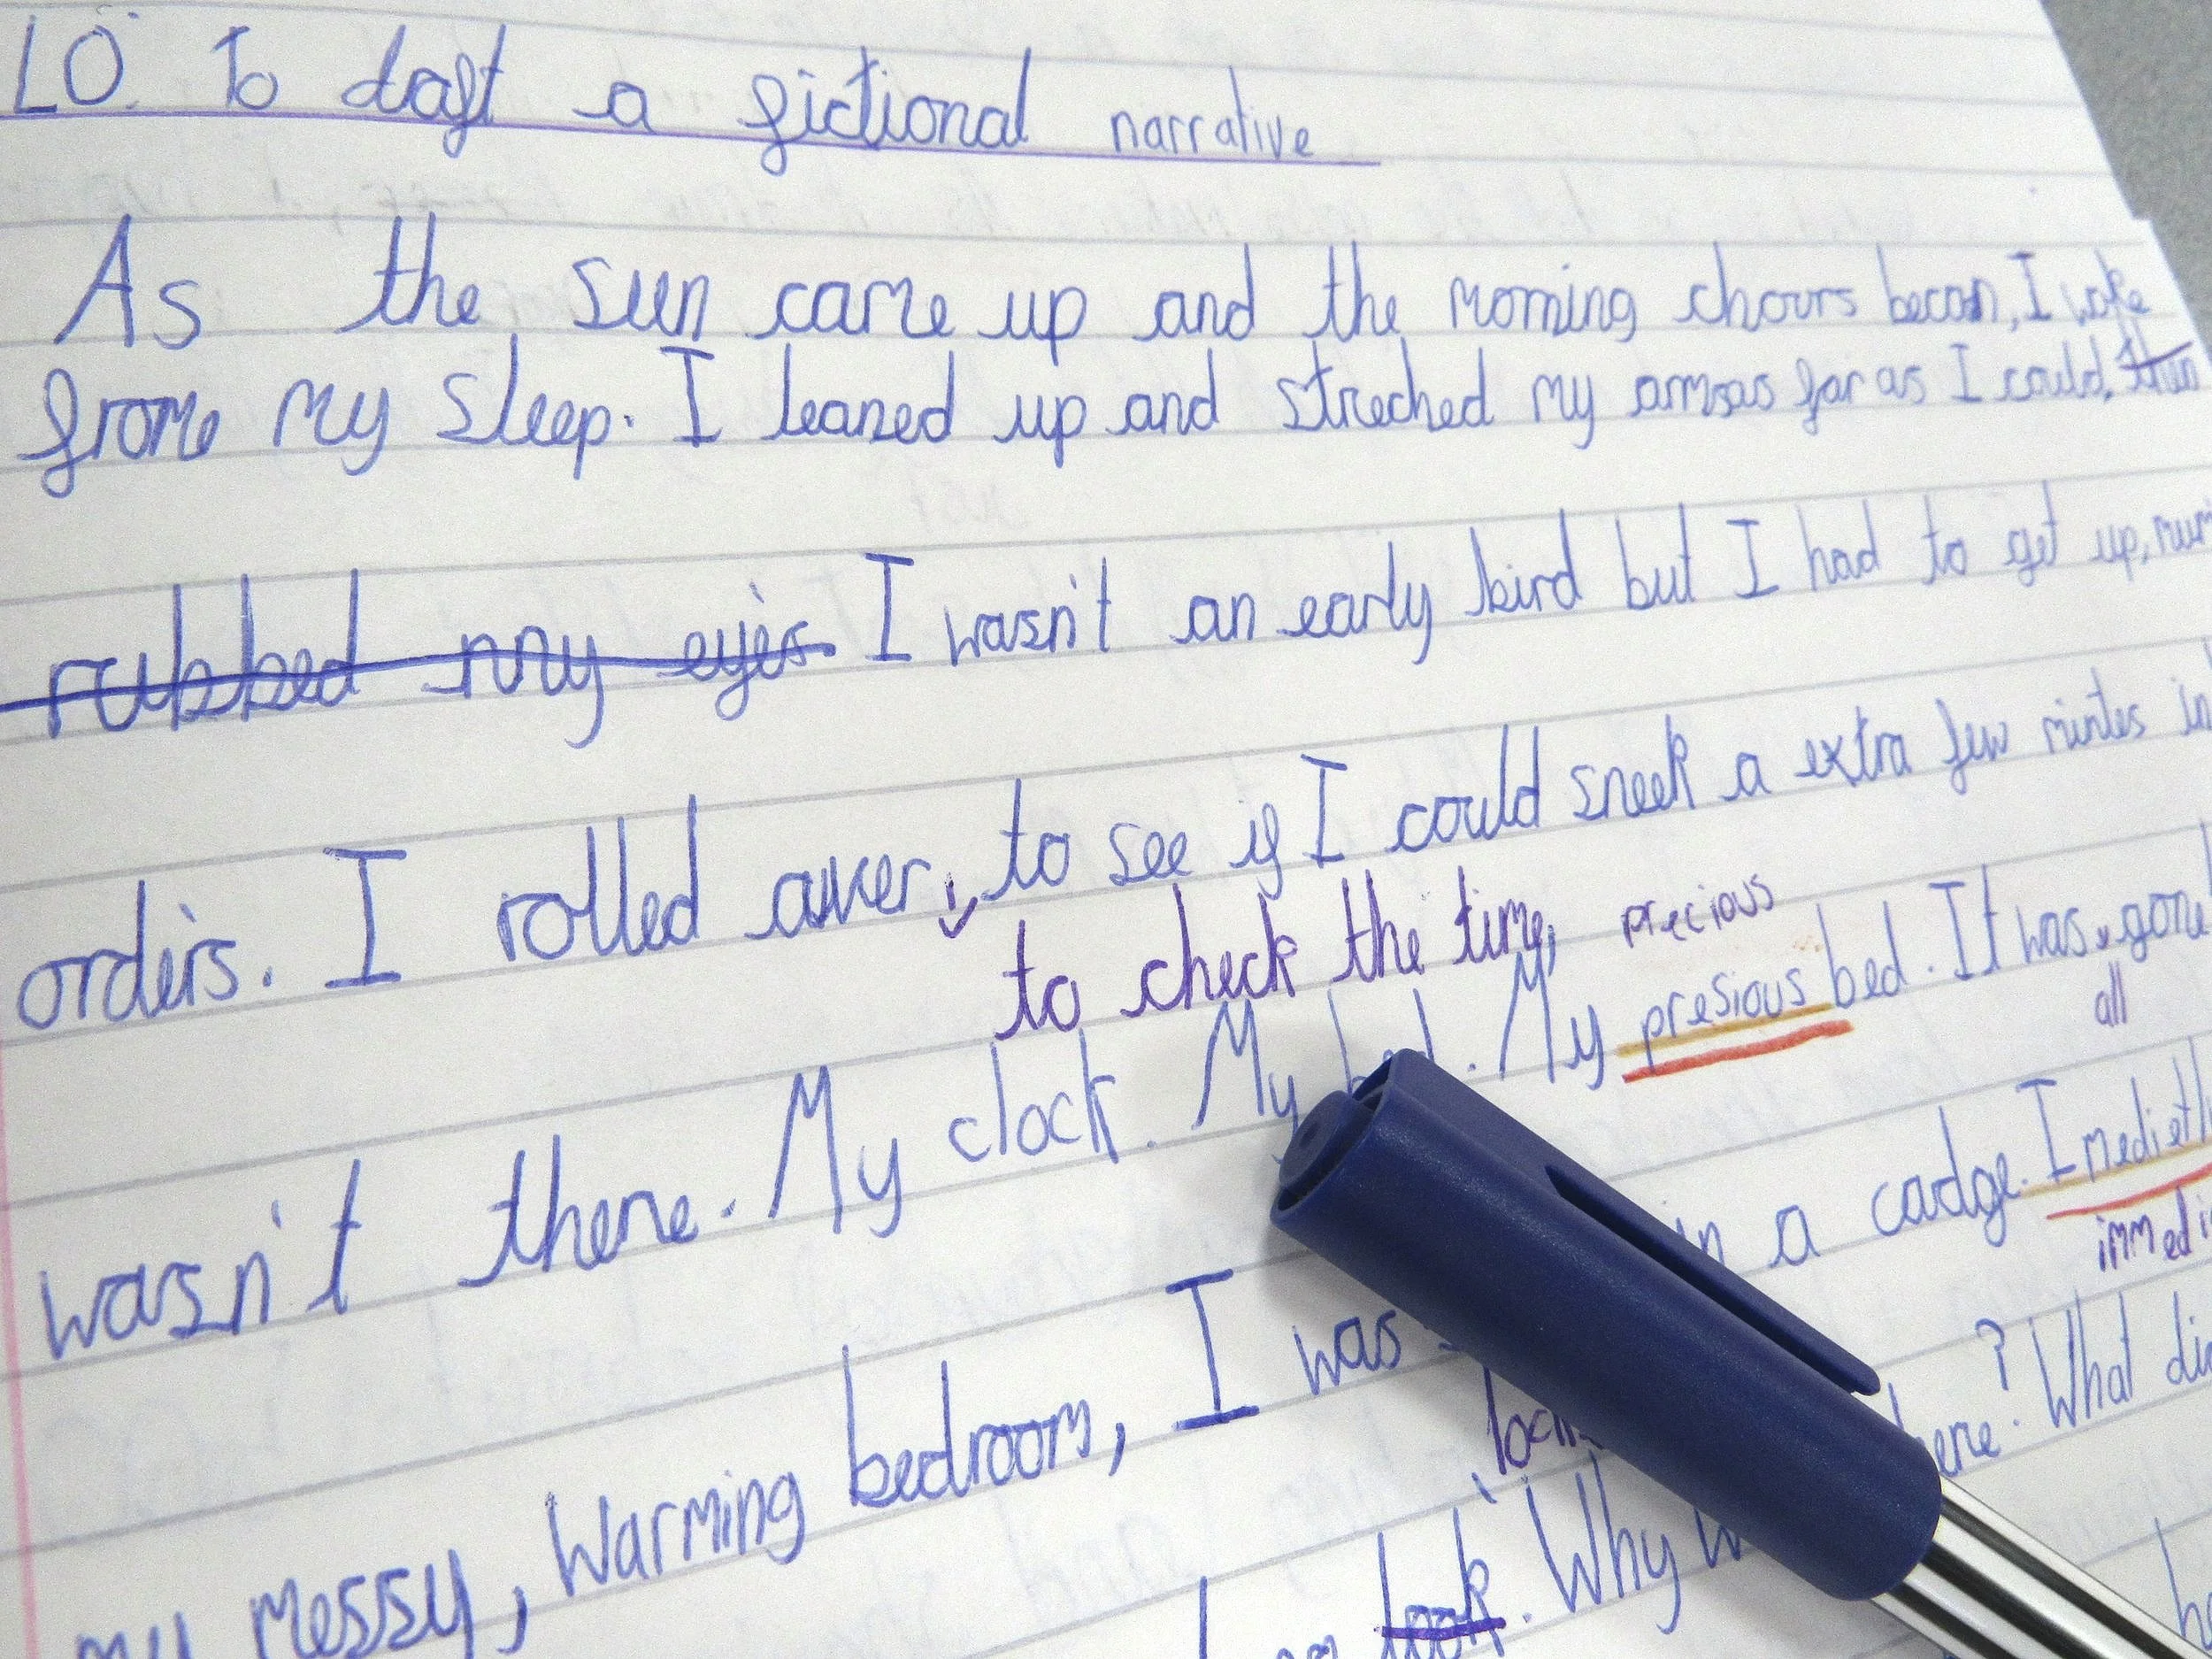 LO: To daft a fictional narrative
As the sun came up and the morning chours becan, I woke
from my sleep. I leaned up and streched my armsas far as I could, then
rubbed my eyes. I wasn't an early bird but I had to get up,
orders. I rolled over, to see if I could sneek a extra few mintes in
to check the time, precious
wasn't there. My clock. My bed. My presious bed. It was gone
all
my messy, Warming bedroom, I was in a cadge. Imedietly
look. Why here? What